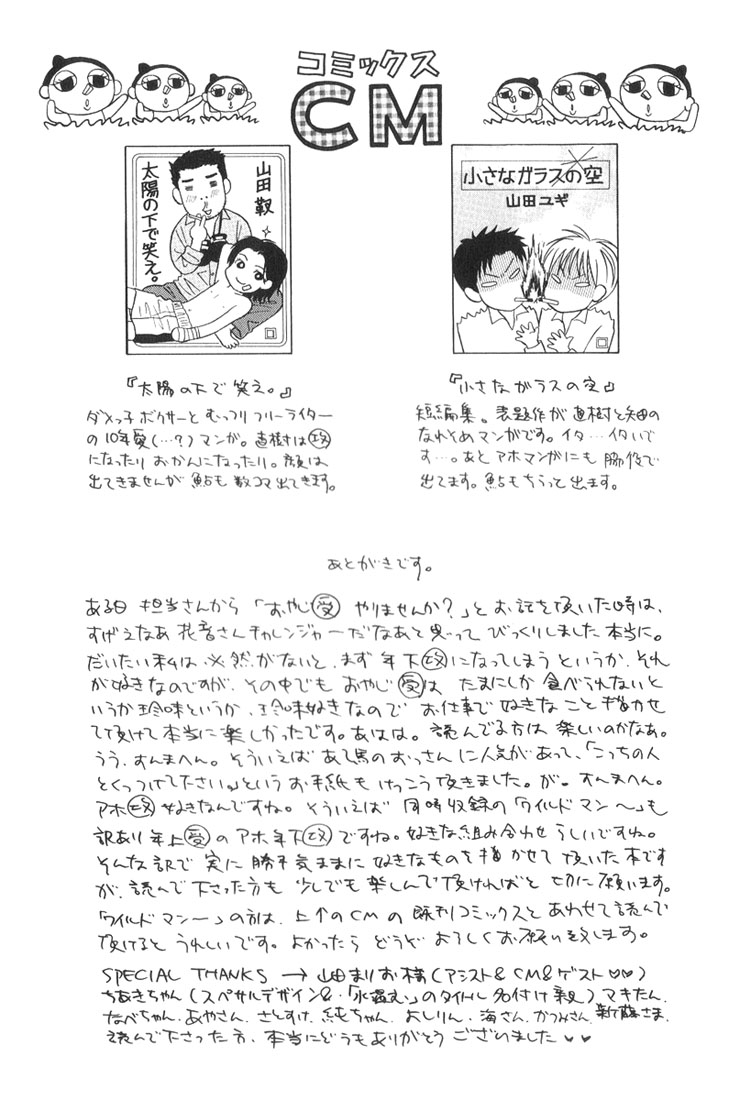 コミックス
CM
山田 靫
太陽の下で笑え。
小さなガラスの空
山田ユギ
『太陽の下で笑え。』
ダメっ子ボクサーとむっつりフリーライター
の10年愛(…?)マンガ。直樹は攻
になったりおかんになったり。顔は
出てきませんが鮎も数コマ出てきます。
『小さなガラスの空』
短編集。表題作が直樹と矢田の
なれそめマンガです。イタ…イタいで
す…。あとアホマンガにも脇役で
出てます。鮎もちらっと出ます。
あとがきです。
ある日担当さんから「おやじ受やりませんか?」とお話を頂いた時は、
すげえなあ花音さんチャレンジャーだなあと思ってびっくりしました本当に。
だいたい私は必然がないと、まず年下攻になってしまうというか、それ
が好きなのですが、その中でもおやじ受はたまにしか食べられないと
いうか珍味というか、珍味好きなのでお仕事で好きなこと描かせ
て頂けて本当に楽しかったです。あはは。読んでる方は楽しいのかなあ。
うう、すんまへん。そういえばあて馬のおっさんに人気があって、「こっちの人
とくっつけて下さい。」というお手紙もけっこう頂きました。が。すんまへん。
アホ攻好きなんですね。そういえば同時収録の「ワイルドマン〜」も
訳あり年上受のアホ年下攻ですね。好きな組み合わせらしいですね。
そんな訳で実に勝手気ままに好きなものを描かせて頂いた本です
が、読んで下さった方も少しでも楽しんで頂ければと切に願います。
「ワイルドマン〜」の方は、上のCMの既刊コミックスとあわせて読んで
頂けるとうれしいです。よかったらどうぞよろしくお願い致します。
SPECIAL THANKS → 山田まりお様(アシスト&CM&ゲスト♡♡)
ちあきちゃん(スペサルデザイン&「水」のタイトル名付け親)マキたん、
なべちゃん、あやさん、さとすけ、純ちゃん、よしりん、海さん、かつみさん、新藤さま、
読んで下さった方、本当にどうもありがとうございました♥♥